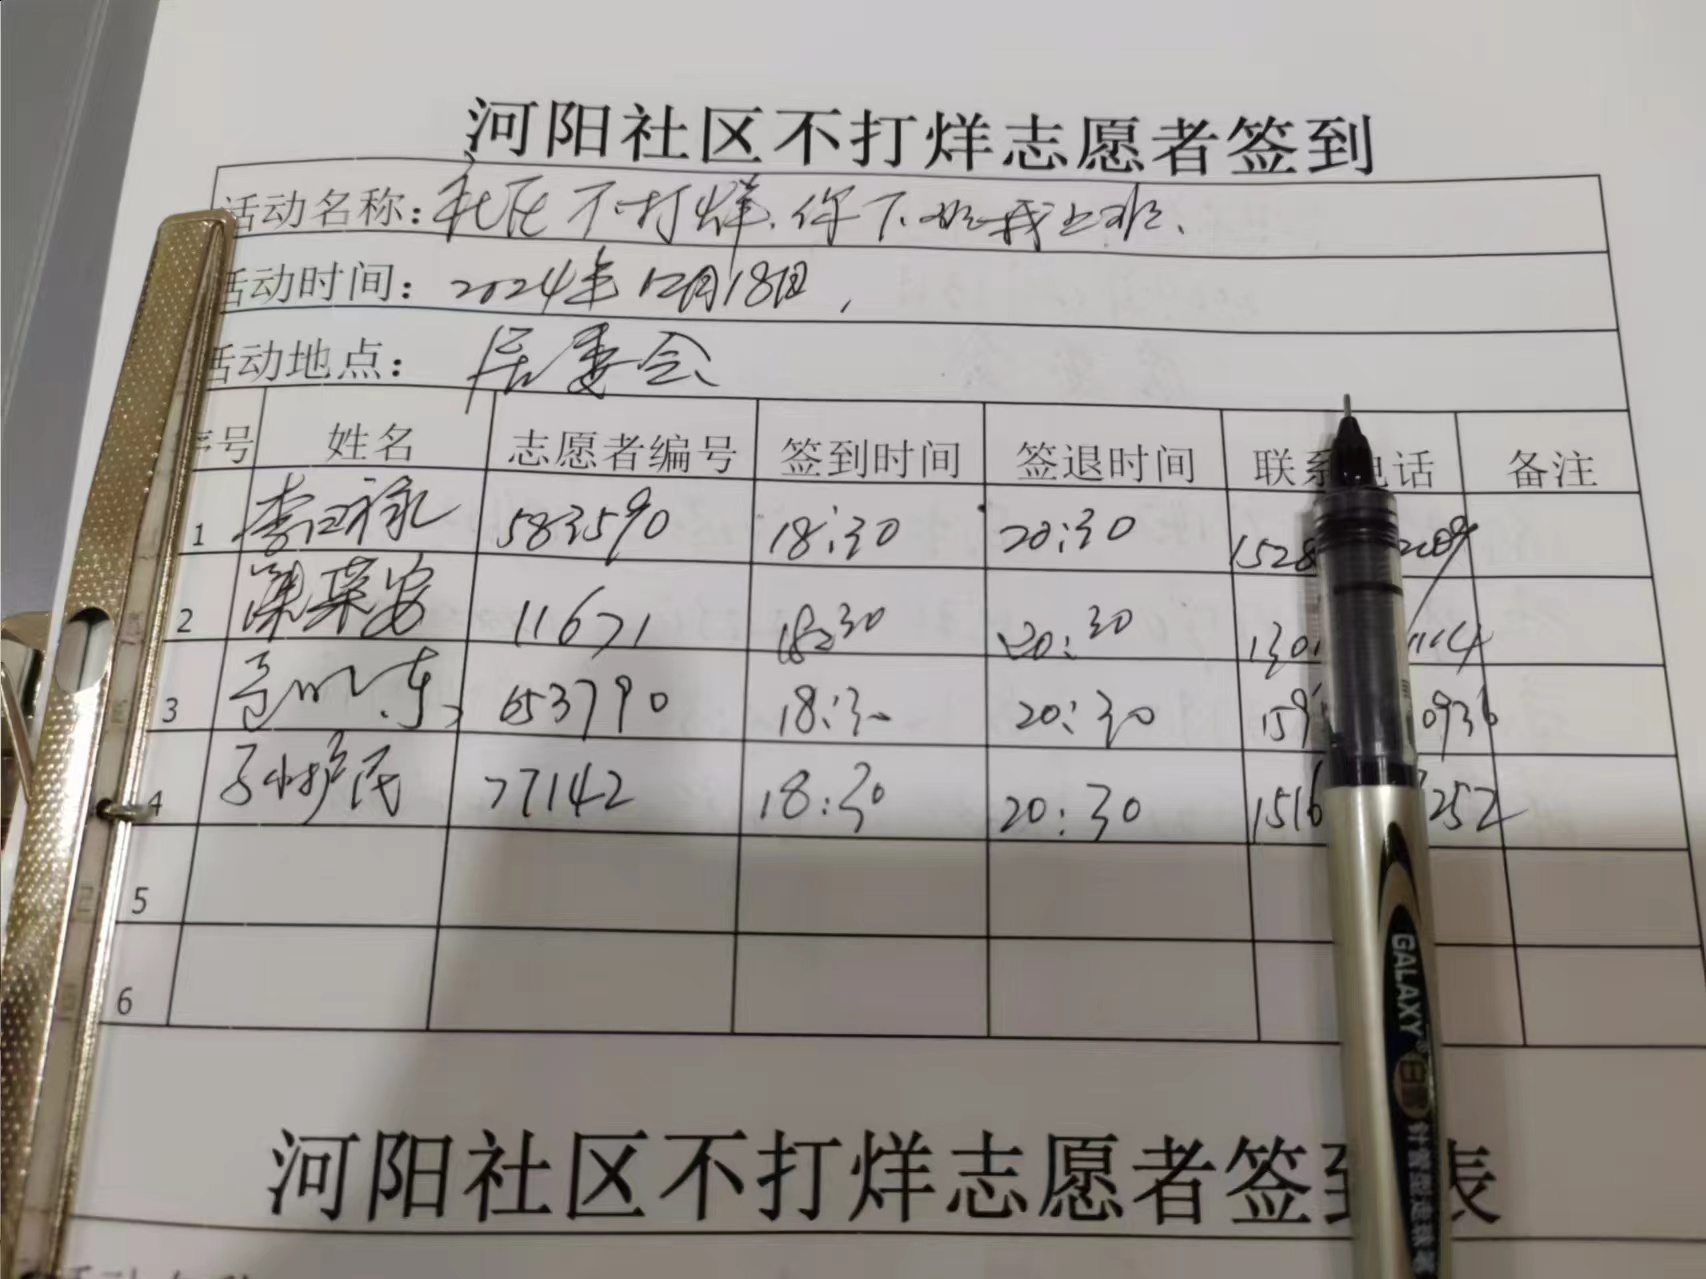 河阳社区不打烊志愿者签到
活动名称：社区不打烊.你下班我上班、
活动时间：2024年12月18日，
活动地点：居委会
序号 姓名 志愿者编号 签到时间 签退时间 联系电话 备注
1 583590 18:30 20:30 1528
2 梁荣安 11671 18:30 20:30 130
3 653790 18:30 20:30 159 0936
4 77142 18:30 20:30 1516 252
5
6
河阳社区不打烊志愿者签到表
GALAXY